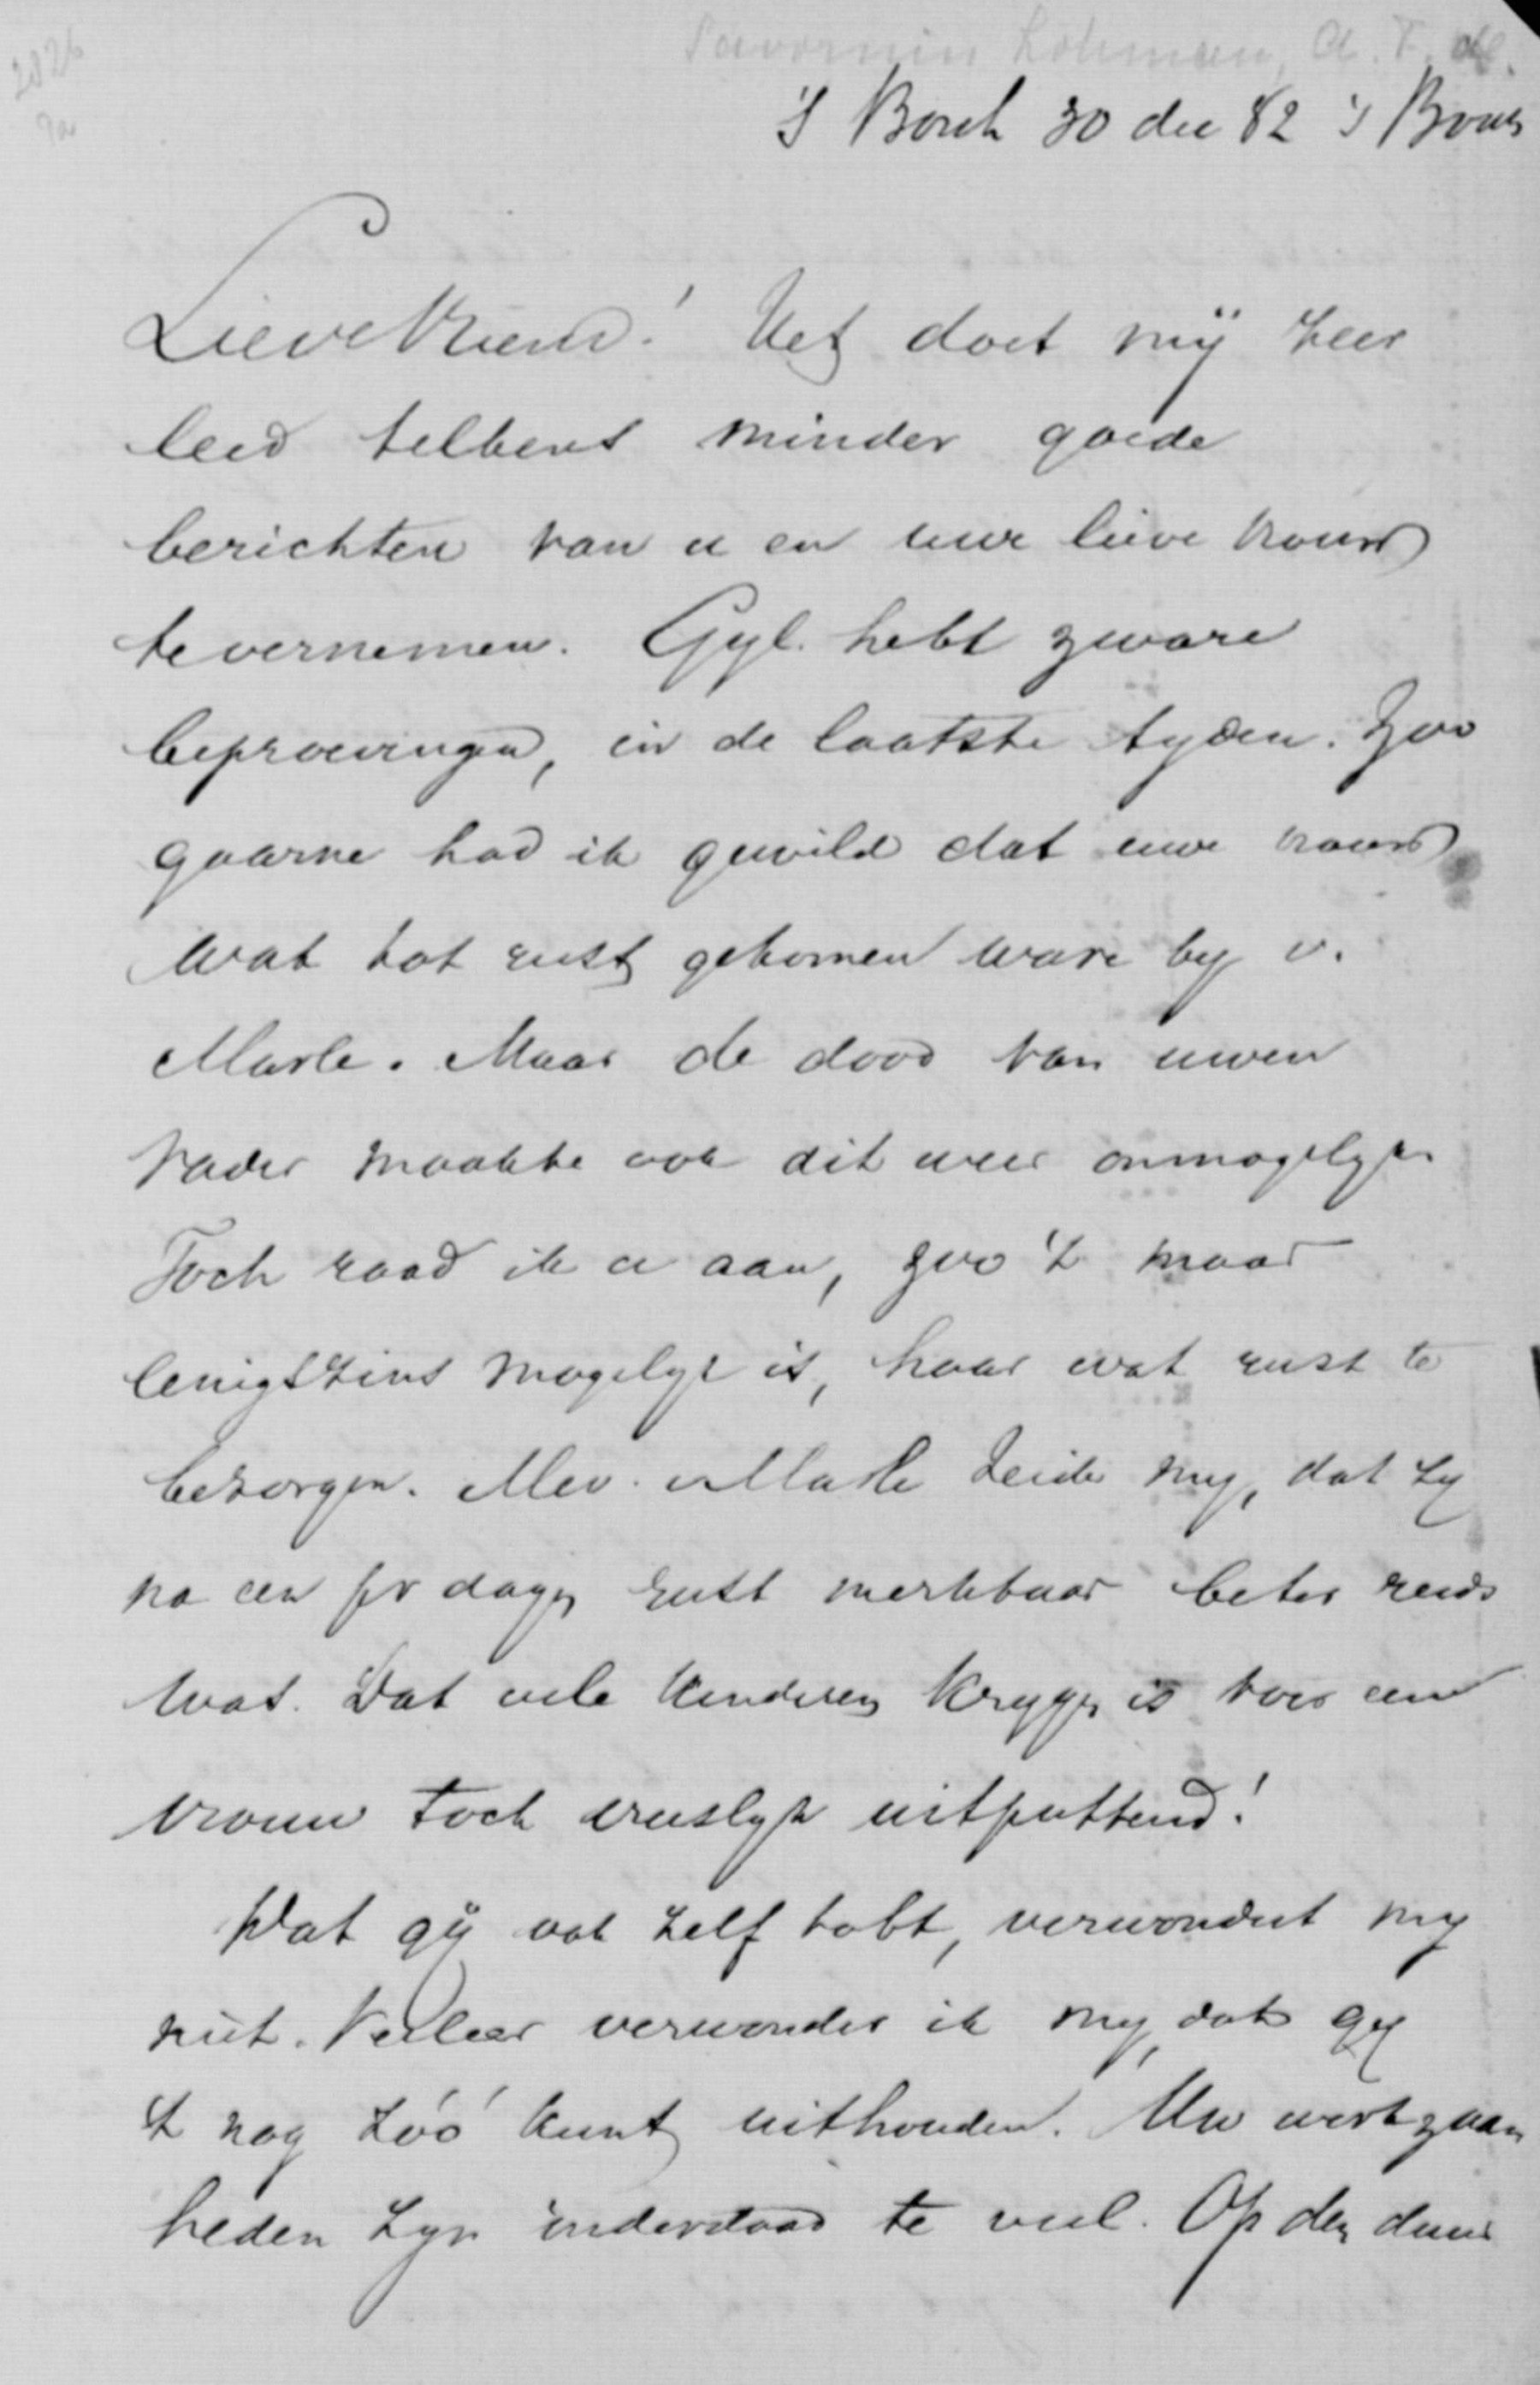 2826
9a
Savornin Lohman, A. F. de.
'S Bosch 30 dec 82 's Bosch
Lieve Vriend! Het doet mij zeer
leed telkens minder goede
berichten van u en uwe lieve vrouw
te vernemen. Gyl. hebt zware
beproevingen, in de laatste tyden. Zoo
gaarne had ik gewild dat uwe vrouw
wat tot rust gekomen ware by v.
Marle. Maar de dood van uwen
Vader maakte ook dit weer onmogelyk.
Toch raad ik u aan, zoo 't maar
eenigszins mogelyk is, haar wat rust te
bezorgen. Mev. v Marle zeide my, dat zy
na een pr dagen rust merkbaar beter reeds
was. Dat vele kinderen krygen is voor een
vrouw toch vreeslyk uitputtend!
Dat gij ook zelf tobt, verwondert my
niet. Veeleer verwonder ik my, dat gy
't nog zóó kunt uithouden. Uw werkzaam
heden zyn inderdaad te veel. Op den duur